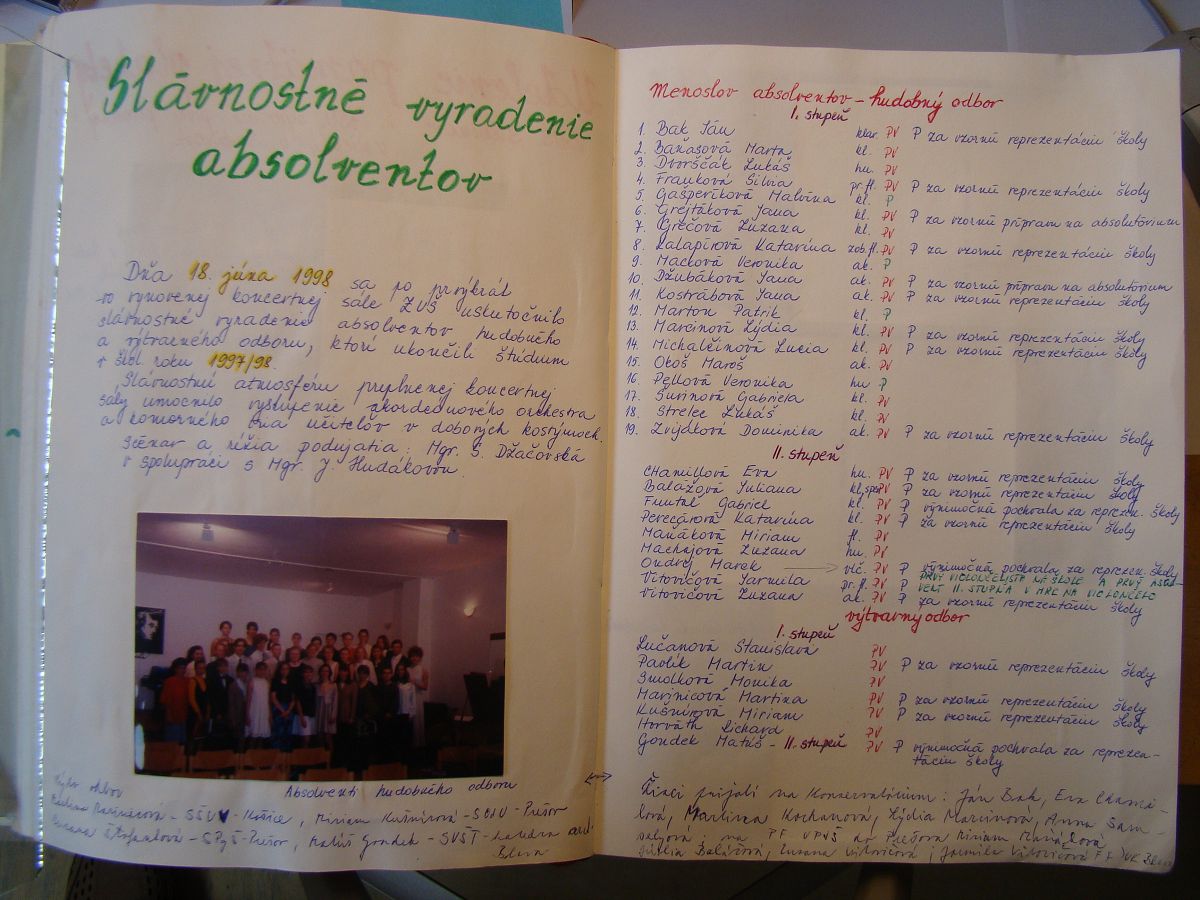 Slávnostné vyradenie
absolventov
Dňa 18. júna 1998 sa po prvýkrát
vo vynovenej koncertnej sále ZUŠ uskutočnilo
slávnostné vyradenie absolventov hudobného
a výtvarného odboru, ktorí ukončili štúdium
v škol. roku 1997/98.
Slávnostnú atmosféru preplnenej koncertnej
sály umocnilo vystúpenie akordeónového orchestra
a komorného tria učiteľov v dobových kostýmoch.
Scénar a réžia podujatia: Mgr. S. Džačovská
v spolupráci s Mgr. J. Hudákovou.
Absolventi hudobného odboru
- Košice, Miriam Kušnírová - Prešor
- Prešor, Matúš Gondek - SVŠT -
Blava
Menoslov absolventov - hudobný odbor
I. stupeň
1. Bak Ján klar. PV P za vzornú reprezentáciu školy
2. Banasová Marta kl. PV
3. Dvorščák Lukáš hu. PV
4. Franková Silvia pr.fl. PV P za vzornú reprezentáciu školy
5. Gašperíková Malvína kl. P
6. Grejtáková Jana kl. PV P za vzornú prípravu na absolutórium
7. Grečová Zuzana kl. PV
8. Kalapirová Katarína zob.fl. PV P za vzornú reprezentáciu školy
9. Macková Veronika ak. P
10. Džubáková Jana ak. PV P za vzornú prípravu na absolutórium
11. Kostrábová Jana ak. PV P za vzornú reprezentáciu školy
12. Marton Patrik kl. P
13. Marcinová Lýdia kl. PV P za vzornú reprezentáciu školy
14. Michalčinová Lucia kl. PV P za vzornú reprezentáciu školy
15. Okoš Maroš ak. PV
16. Pellová Veronika hu. P
17. Šurinová Gabriela kl. PV
18. Strelec Lukáš kl. PV
19. Zvijáková Dominika ak. PV P za vzornú reprezentáciu školy
II. stupeň
Chamillová Eva hu. PV P za vzornú reprezentáciu školy
Balážová Juliana kl, PV P za vzornú reprezentáciu školy
Funtál Gabriel kl. PV P výnimočná pochvala za reprezen. školy
Perecárová Katarína kl. PV P za vzornú reprezentáciu školy
Maňáková Miriam fl. PV
Machajová Zuzana hu. PV
Ondrej Marek vlč. PV P výnimočná pochvala za reprezen. školy
PRVÝ VIOLONČELISTA NA ŠKOLE A PRVÝ ABSOL-
Vitovičová Jarmila pr.fl. PV P VENT II. STUPŇA V HRE NA VIOLONČELO
Vitovičová Zuzana ak. PV P za vzornú reprezentáciu školy
výtvarný odbor
I. stupeň
Lučanová Stanislava PV
Pavlik Martin PV P za vzornú reprezentáciu školy
Smolková Monika PV
Marinicová Martina PV P za vzornú reprezentáciu školy
Kušnírová Miriam PV P za vzornú reprezentáciu školy
Horváth Richard PV
Gondek Matúš - II. stupeň PV P výnimočná pochvala za reprezen-
táciu školy
Žiaci prijatí na Konzervatórium: Ján Bak, Eva Chami-
lová, Martina Kochanová, Lýdia Marcinová, Anna Sam-
; na PF UPJŠ do Prešova Miriam Maňáková
Júlia Balážová, Zuzana Vitovičová; Jarmila Vitovičová FF UK Blava